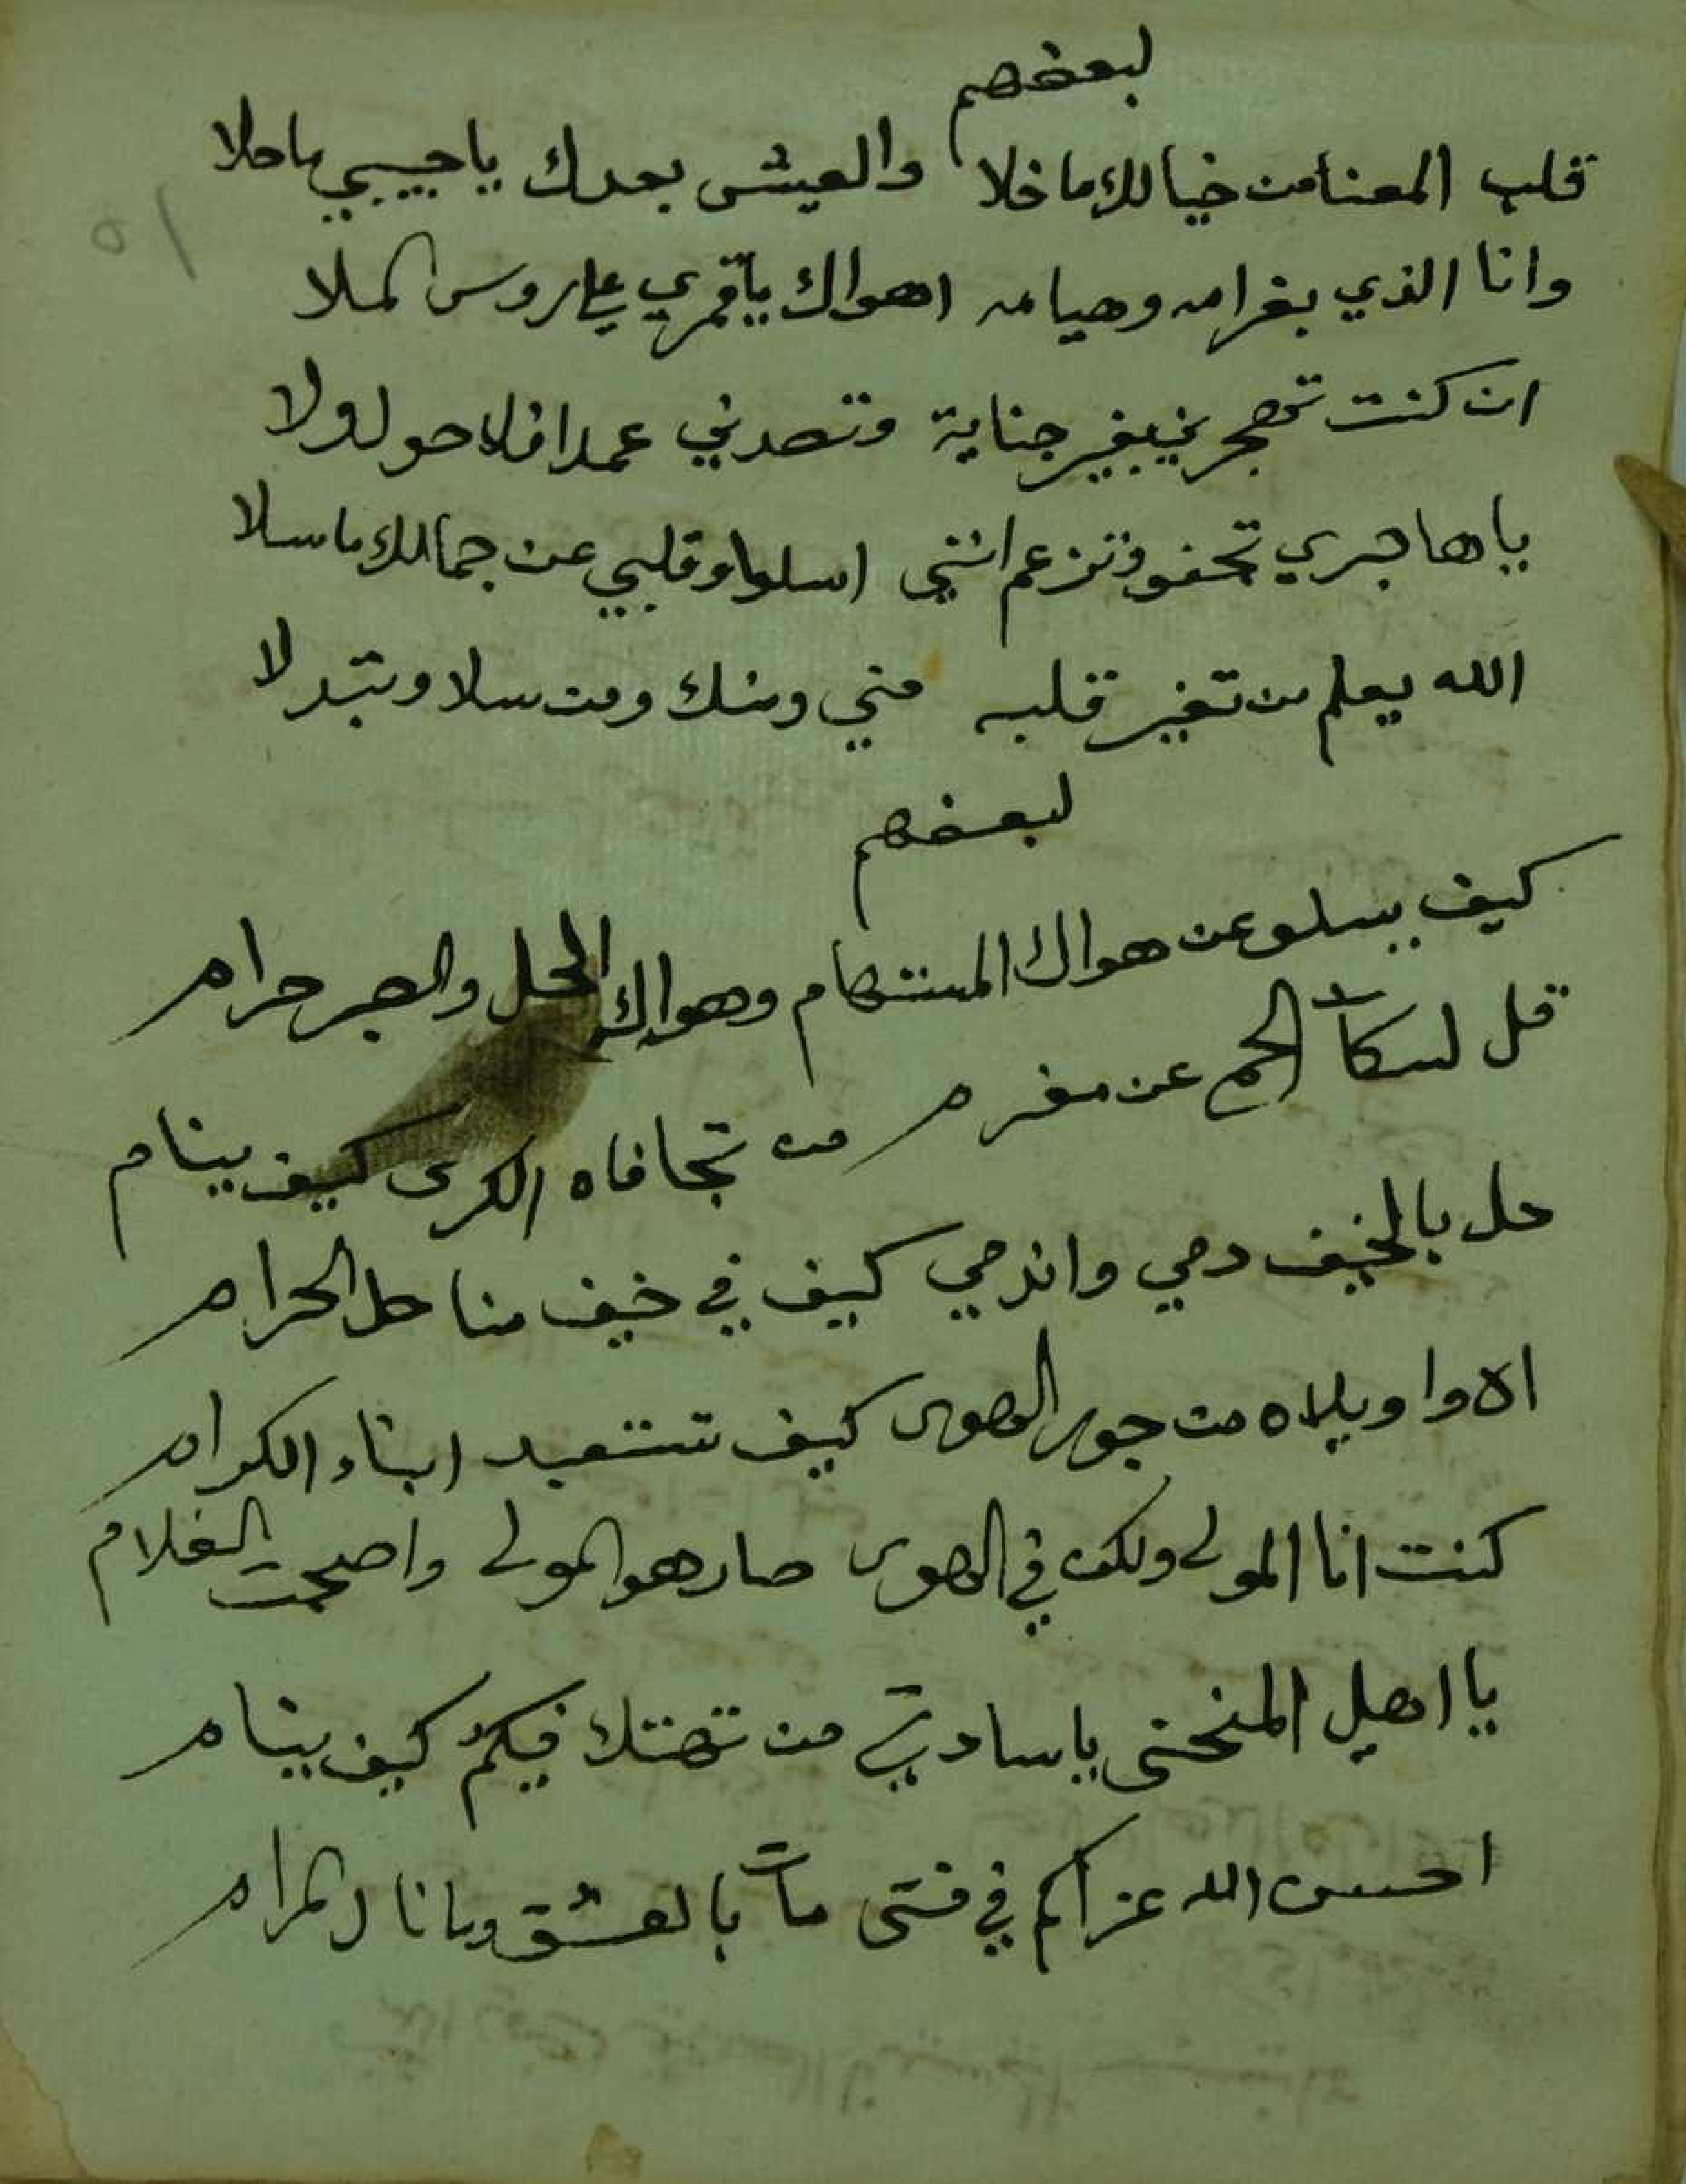 لبعضهم
قلب المعنا من خيالك ما خلا والعيش بعدك يا حبيبي ما حلا
وانا الذي بغرامه وهيامه اهواك يا قمري على روس الملا
ان كنت تهجرني بغير جناية وتصدني عمدا فلا حول ولا
يا هاجري تجفو وتزعم انني اسلوا وقلبي عن جمالك ما سلا
الله يعلم من تغير قلبه مني ومنك ومن سلا وتبدلا
لبعضهم
كيف يسلو عن هواك المستهام وهواك الحل والصبر حرام
قل لسكان الحمى عن مغرم من تجافاه الكرى كيف ينام
حل بالخيف دمي واندمي كيف في خيف منا حل الحرام
اه وا ويلاه من جور الهوى كيف تستعبد ابناء الكرام
كنت انا المولى ولكن في الهوى صار هو المولى واصبحت الغلام
يا اهيل المنحنى يا سادتي من تهتك فيكم كيف ينام
احسن الله عزاكم في فتى مات بالعشق وما نال المرام
١٥